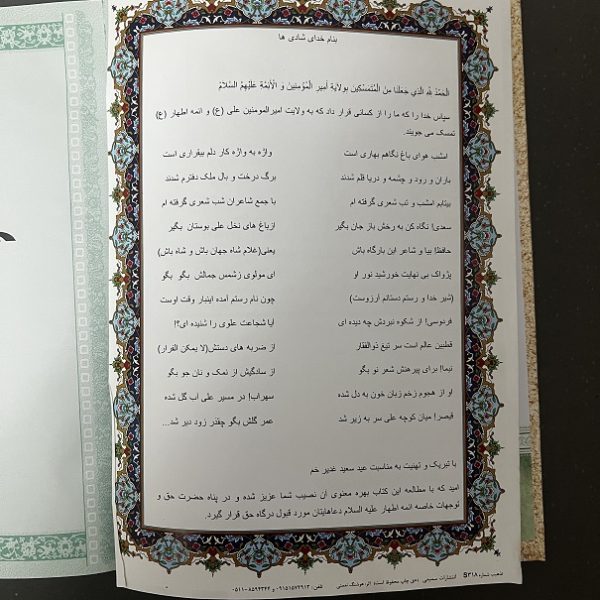 بنام خدای شادی ها
الْحَمْدُ لله الَّذي جَعَلَنا مِنَ الْمُتَمَسِّکینَ بِوِلایَةِ اَمیرِ الْمُؤمِنینَ وَ الْأئِمَّةِ عَلَیْهِمُ السَّلامُ
سپاس خدا را که ما را از کسانی قرار داد که به ولایت امیرالمومنین علی (ع) و ائمه اطهار (ع)
تمسک می جویند
امشب هوای باغ نگاهم بهاری است واژه به واژه کار دلم بیقراری است
باران و رود و چشمه و دریا قلم شدند برگ درخت و بال ملک دفترم شدند
بیتابم امشب و تب شعری گرفته ام با جمع شاعران شب شعری گرفته ام
سعدی! نگاه کن به رخش باز جان بگیر ازباغ های نخل علی بوستان بگیر
حافظ! بیا و شاعر این بارگاه باش یعنی(غلام شاه جهان باش و شاه باش)
پژواک بی نهایت خورشید نور او ای مولوی زشمس جمالش بگو بگو
(شیر خدا و رستم دستانم آرزوست) چون نام رستم آمده اینبار وقت اوست
فردوسی! از شکوه نبردش چه دیده ای آیا شجاعت علوی را شنیده ای؟!
قطبین عالم است سر تیغ ذوالفقار از ضربه های دستش(لا یمکن الفرار)
نیما! برای پیرهنش شعر نو بگو از سادگیش از نمک و نان جو بگو
او از هجوم زخم زبان خون به دل شده سهراب! در مسیر علی آب گل شده
قیصر! میان کوچه علی سر به زیر شد عمر گلش بگو چقدر زود دیر شد...
با تبریک و تهنیت به مناسبت عید سعید غدیر خم
امید که با مطالعه این کتاب بهره معنوی آن نصیب شما عزیز شده و در پناه حضرت حق و
توجهات خاصه ائمه اطهار علیه السلام دعاهایتان مورد قبول درگاه حق قرار گیرد.
تذهیب شماره S۳۱۸ انتشارات شمس (حق چاپ محفوظ است) اثر: هوشنگ تلفن: ۰۹۱۵۱۵۷۳۹۱۳ و ۸۵۹۴۳۴۴-۰۵۱۱